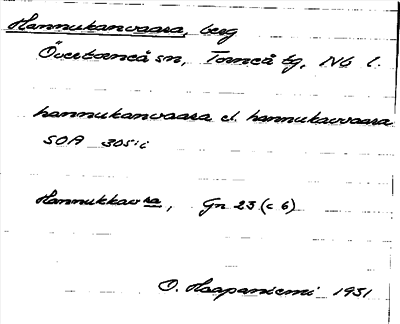 Hannukanvaara, berg
Övertorneå sn, Torneå tg, Nb l.
hannukanvaara el. hannukavvaara
SOA 305:i
Hannukkavra, Gn 23 (c 6)
O. Haapaniemi 1951